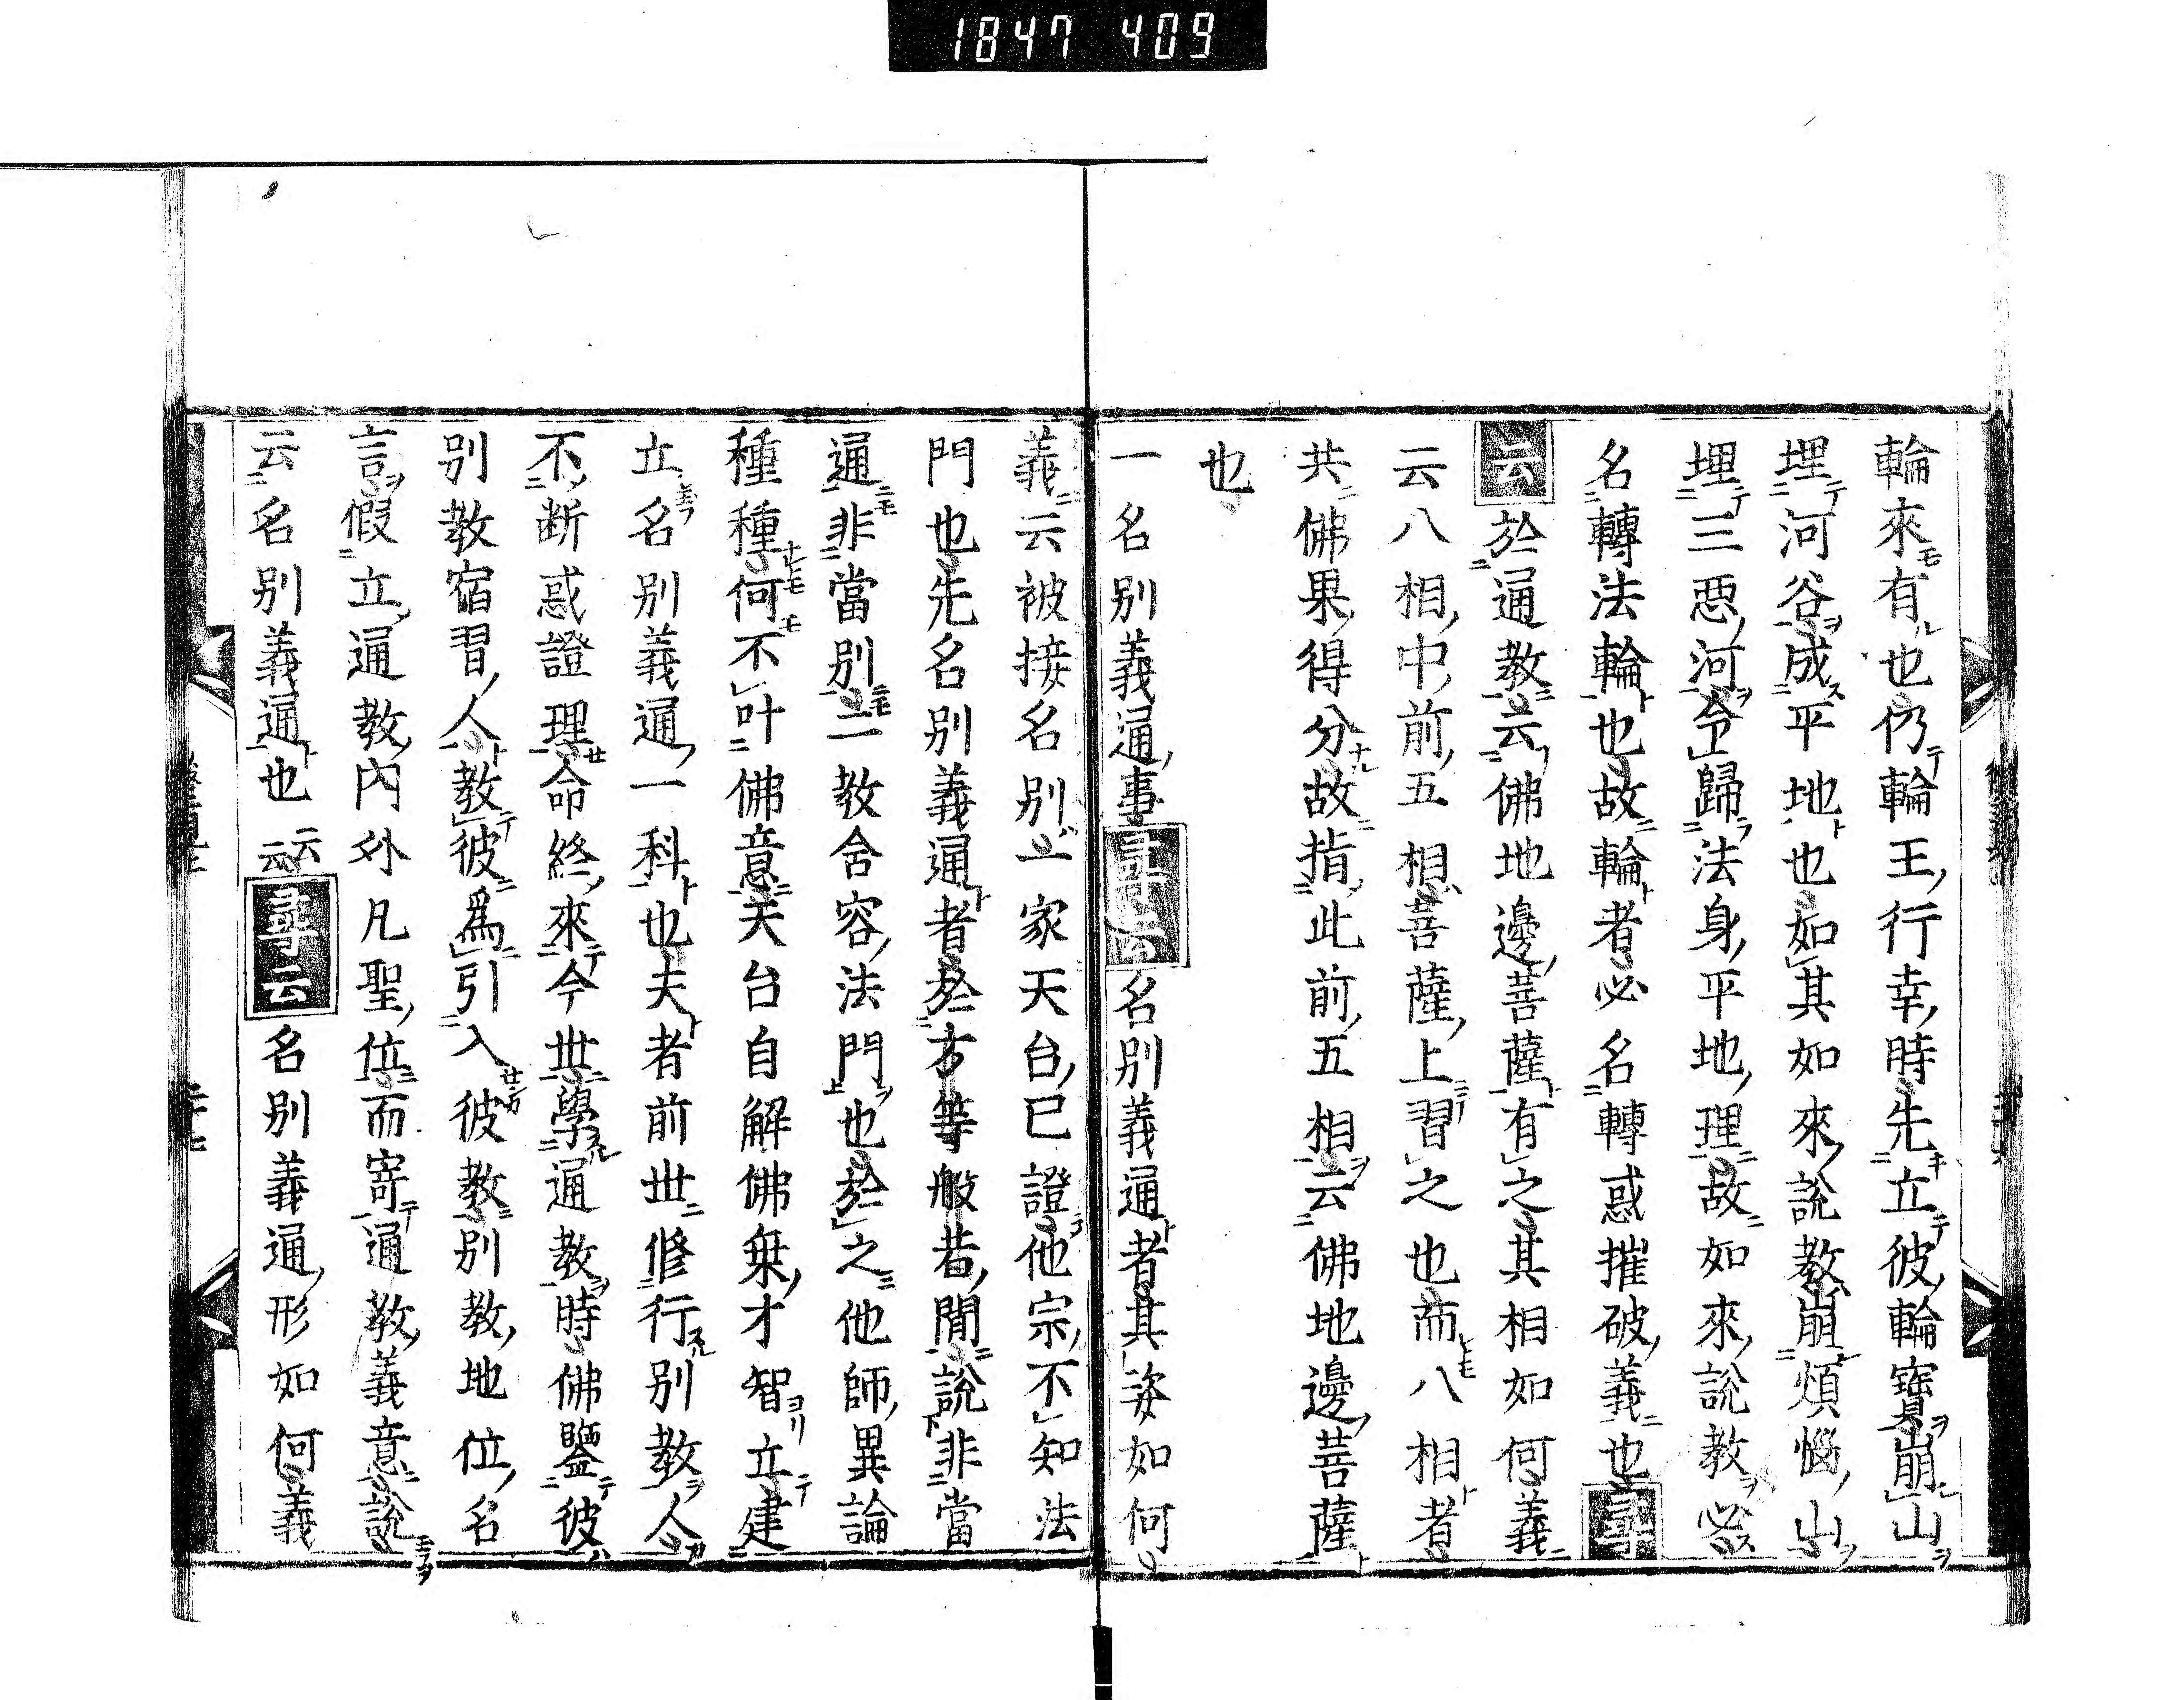 1847 409
輪來有也仍輪王行幸時先立彼輪寶崩山
埋河谷成平地也如其如來說教崩煩惱山
埋三惡河令歸法身平地理故如來說教必
名轉法輪也故輪者必名轉惑摧破義也尋
云於通教云佛地邊菩薩有之其相如何義
云八相中前五相菩薩上習之也而八相者
共佛果得分故指此前五相云佛地邊菩薩
也
一名別義通事尋云名別義通者其姿如何
義云被接名別一家天台已證他宗不知法
門也先名別義通者於方等般若間說非當
通非當別二教含容法門也於之他師異論
種種何不叶佛意天台自解佛乗才智立建
立名別義通一科也夫者前世修行別教人
不断惑證理命終來今世學通教時佛鑒彼
別教宿習人教彼爲引入彼教別教地位名
言假立通教內外凡聖位而寄通教義意說
云名別義通也云云尋云名別義通形如何義